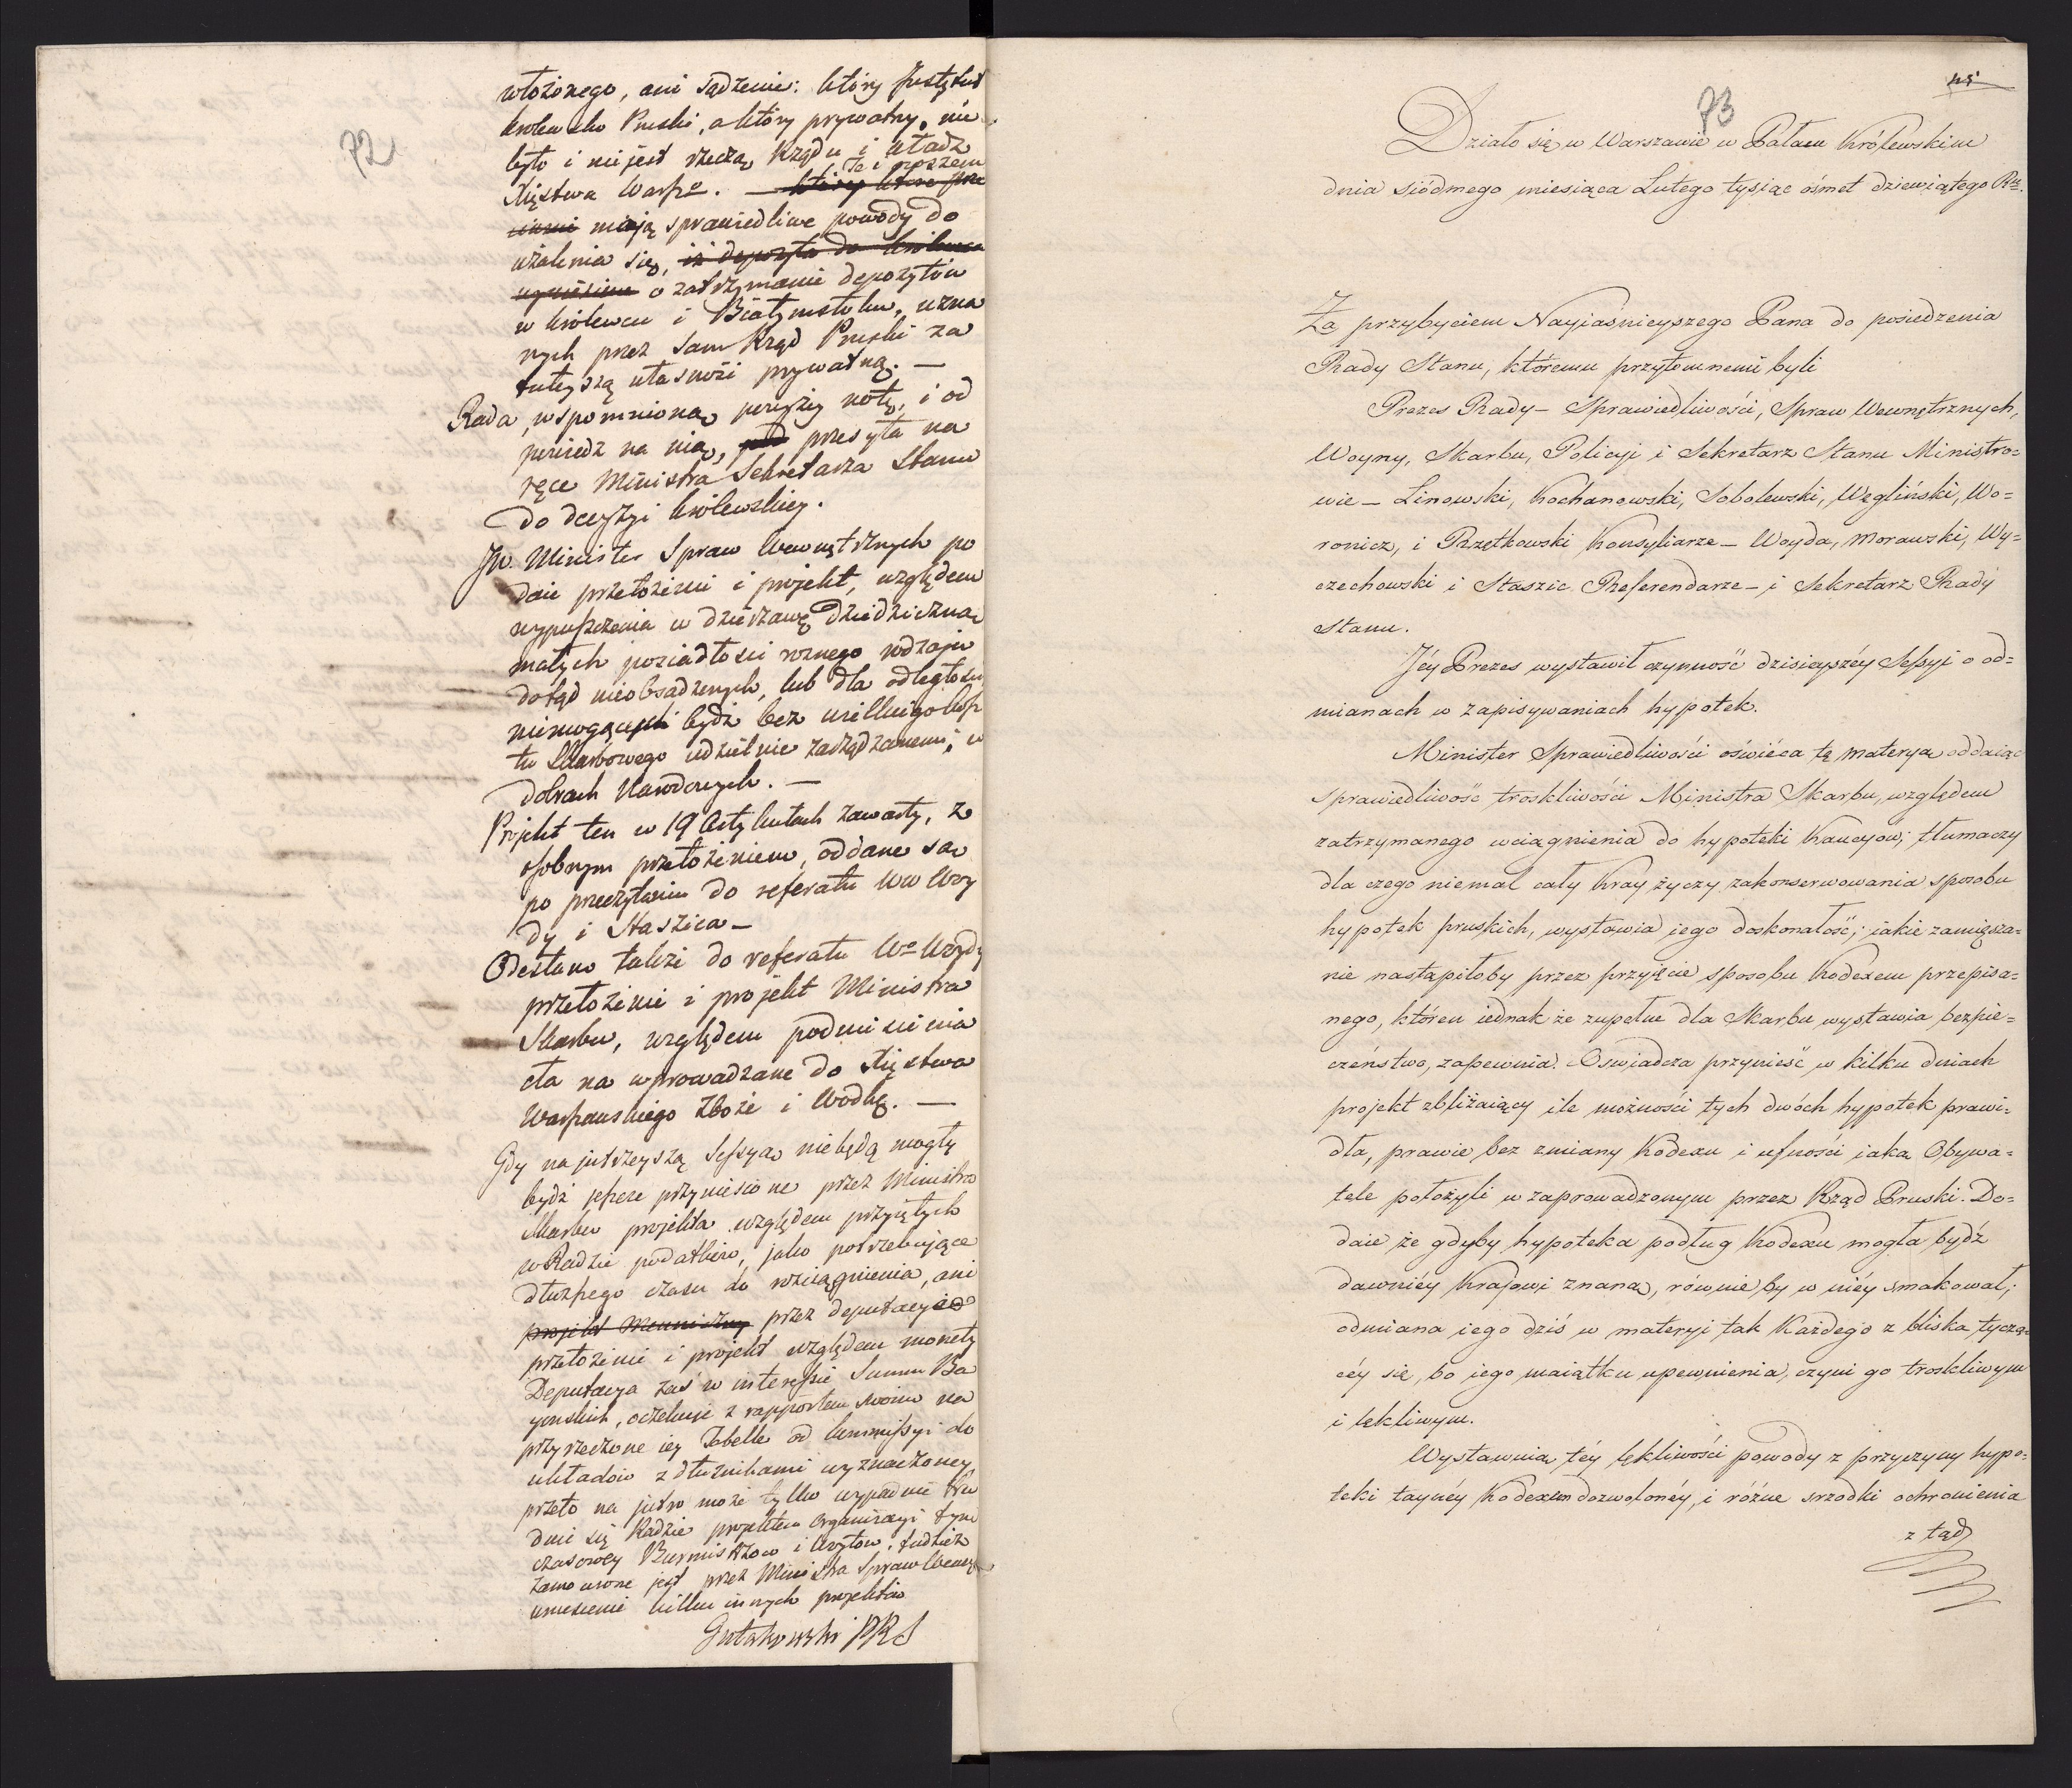 72
włożonego, ani sądzenie: który Instytut
krolewsko Pruski, a który prywatny, nie
było i nie jest rzeczą Rządu i władz
Xięstwa Warszo. — Te i owszem
~~który które prze~~
mają sprawiedliwe powody do
użalenia się, ~~iż depozyta do Krolewca~~
~~wyniesione~~ o zatrzymanie depozytów
w krolewcu i Białymstoku, uzna
nych przez sam Rząd Pruski za
tuteyszą własność prywatną. —
Rada, wspomnioną powyżey notę, i od
powiedz na nią, przesyła na
ręce Ministra Sekretarza Stanu
do decyzyi krolewskiey.
JW Minister Spraw Wewnętrznych po
daie przełożenie i projekt, względem
wypuszczenia w dzierżawę dziedziczną
małych posiadłości roznego rodzaju
dotąd nieobsadzonych, lub dla odległości
niemogących bydź bez wielkiego kosz
tu Skarbowego udzielnie zarządzanemi, w
dobrach Narodowych. —
Projekt ten w 19 Artykułach zawarty, z
osobnym przełożeniem, oddane są
po przeczytaniu do referatu WW Woy
dy i Staszica —
Odesłano także do referatu Wo Woydy
przełożenie i projekt Ministra
Skarbu, względem podniesienia
cła na wprowadzane do Xięstwa
Warszawskiego Zboże i Wodkę. —
Gdy na jutrzeyszą Sessyą nie będą mogły
bydź jeszcze przyniesione przez Ministra
Skarbu projekta względem przyjętych
w Radzie podatkow, jako potrzebujące
dłuższego czasu do rozciągnienia, ani
~~projekt Menniczny~~ przez deputacyją
przełożenie i projekt względem monety
Deputacya zaś w interessie Summ Ba
yonskich, oczekuje z rapportem swoim na
przyrzeczone iey Tabelle od kommissyi do
układow z dłużnikami wyznaczoney
przeto na jutro może tylko wypadnie tru
dnić się Radzie projektem Organizacyi tym
czasowey Burmistrzow i Woytow, tudzież
zamowione jest przez Ministra Spraw Wewnę
wniesienie kilku innych projektów
Gutakowski PRS
45
73
Działo się w Warszawie w Pałacu Królewskim
dnia siódmego miesiąca Lutego tysiąc ośmset dziewiątego Ru.
Za przybyciem Nayiaśnieyszego Pana do posiedzenia
Rady Stanu, któremu przytomnemi byli
Prezes Rady — Sprawiedliwości, Spraw Wewnętrznych,
Woyny, Skarbu, Policyi i Sekretarz Stanu Ministro=
wie — Linowski, Kochanowski, Sobolewski, Węgliński, Wo=
ronicz, i Rzętkowski Konsyliarze — Woyda, Morawski, Wy=
czechowski i Staszic Referendarze — i Sekretarz Rady
Stanu.
Jéy Prezes wystawił czynność dzisieyszéy Sessyi o od=
mianach w zapisywaniach hypotek.
Minister Sprawiedliwości oświéca tę materyą oddaiąc
sprawiedliwość troskliwości Ministra Skarbu, względem
zatrzymanego wciągnienia do hypoteki Kaucyow; tłumaczy
dla czego niemal cały Kray życzy zakonserwowania sposobu
hypotek pruskich, wystawia iego doskonałość; iakie zamięsza=
nie nastąpiłoby przez przyięcie sposobu Kodexem przepisa=
nego, któren iednak że zupełne dla Skarbu wystawia bezpie=
czeństwo, zapewnia. Oswiadcza przynieść w kilku dniach
projekt zbliżaiący ile możności tych dwóch hypotek prawi=
dła, prawie bez zmiany Kodexu i ufności iaką Obywa=
tele położyli w zaprowadzonym przez Rząd Pruski. Do=
daie że gdyby hypoteka podług Kodexu mogła bydź
dawniéy Krajowi znana, równie by w niéy smakował;
odmiana iego dziś w materyi tak Każdego z bliska tyczą=
céy się, bo iego maiątku upewnienia, czyni go troskliwym
i lękliwym.
Wystawnia téy lękliwości powody z przyczyny hypo=
teki taynéy Kodexem dozwolonéy, i różne srzodki ochronienia
z tąd